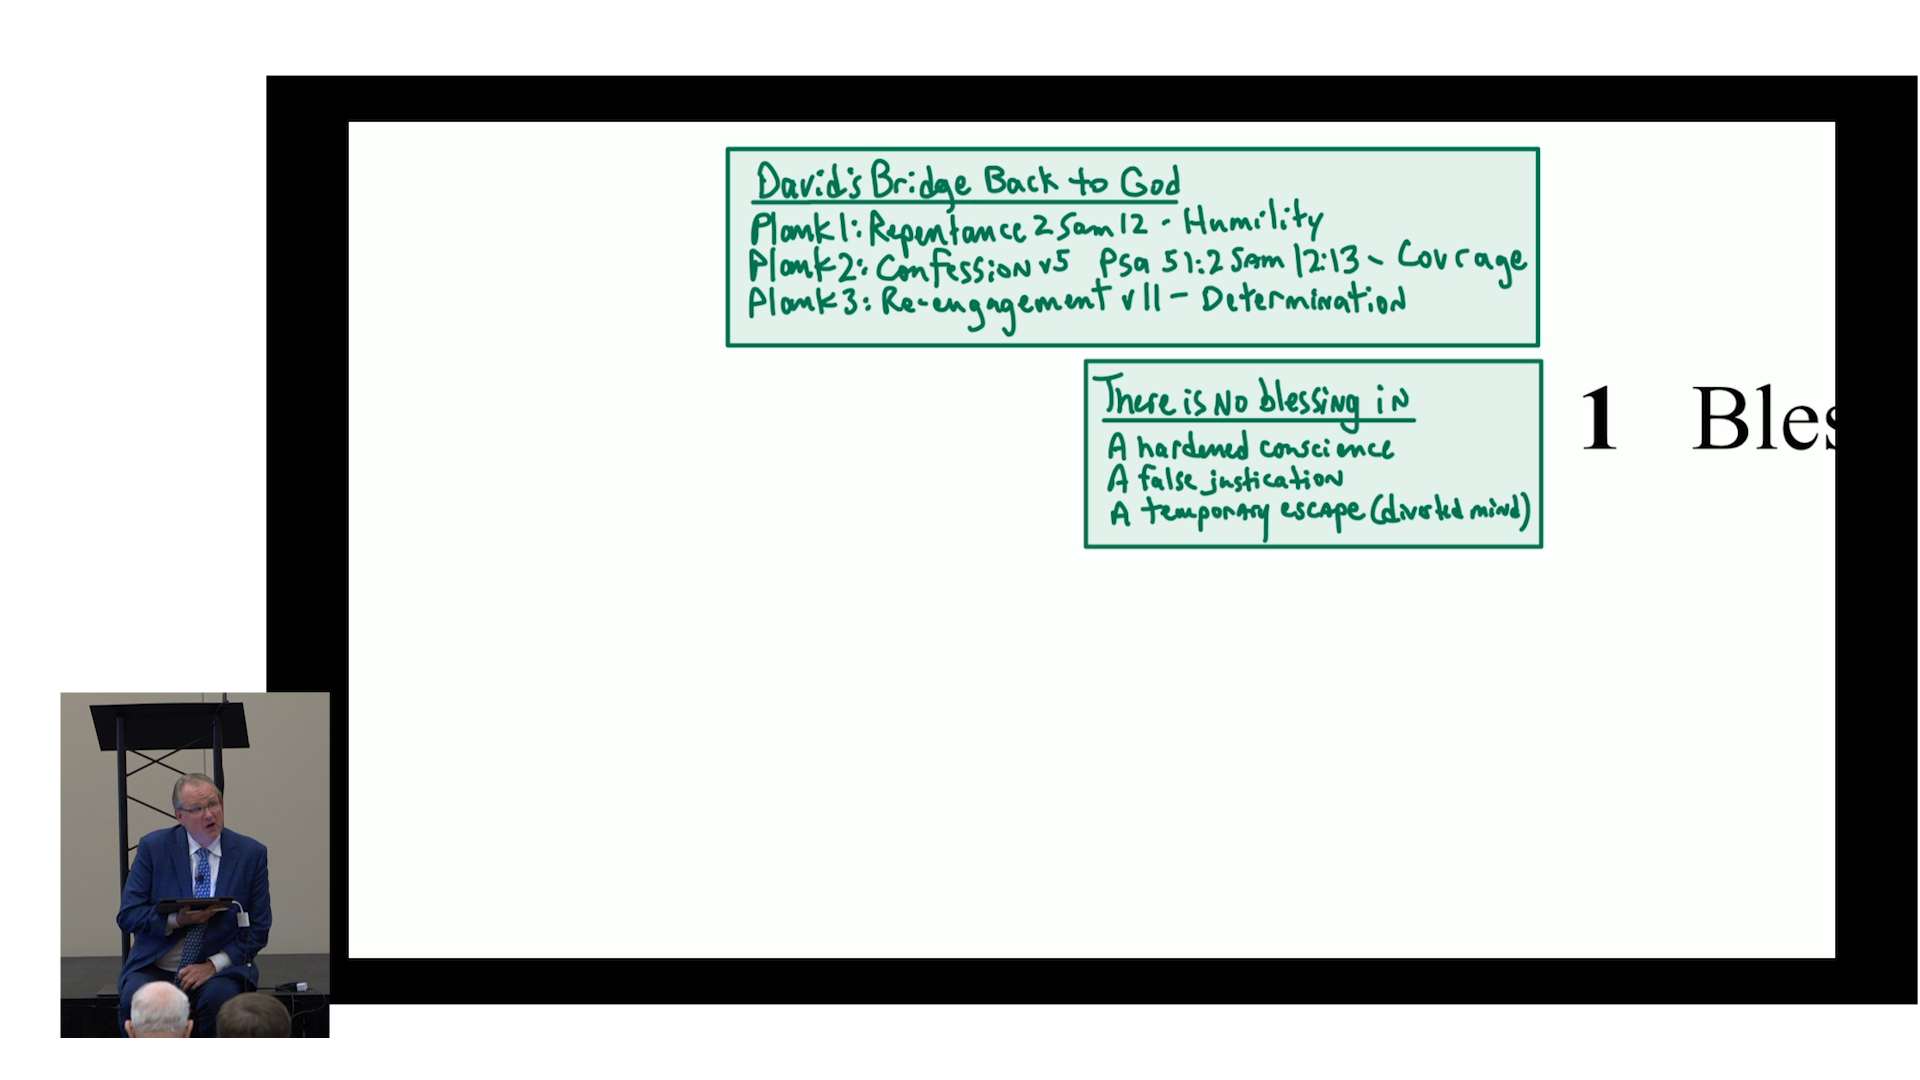 David's Bridge Back to God
Plank1: Repentance 2 Sam 12 - Humility
Plank2: Confession v5 Psa 51:2 Sam 12:13 - Courage
Plank3: Re-engagement v11 - Determination
There is No blessing in
A hardened conscience
A false justication
A temporary escape (diverted mind)
1 Bles